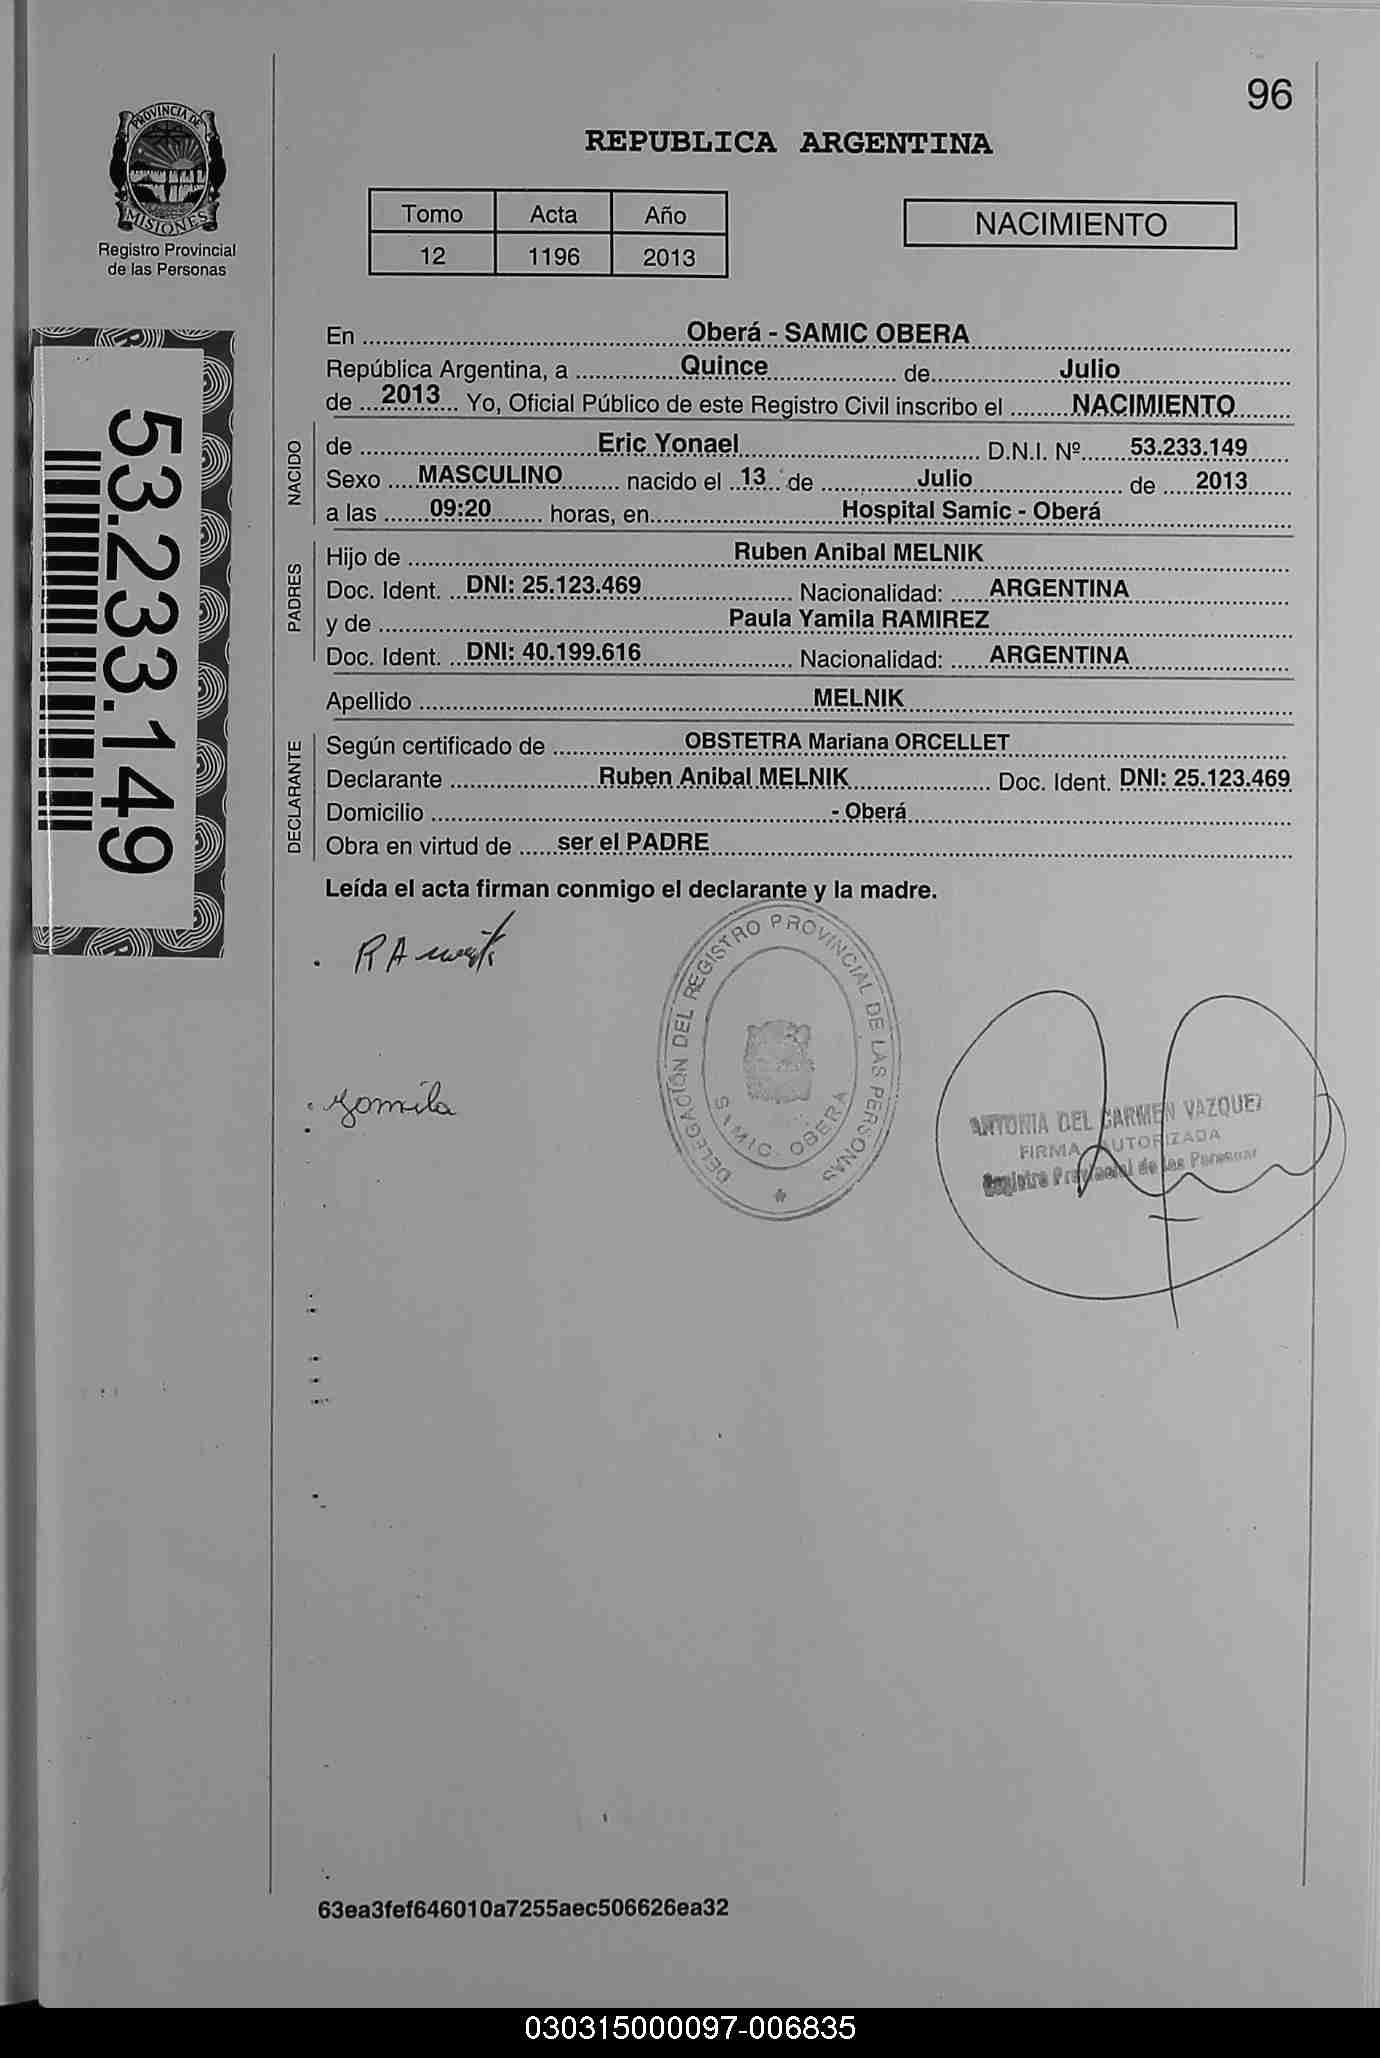 96
PROVINCIA DE
MISIONES
Registro Provincial
de las Personas
REPUBLICA ARGENTINA
Tomo Acta Año
12 1196 2013
NACIMIENTO
53.233.149
En Oberá - SAMIC OBERA
República Argentina, a Quince de Julio
de 2013 Yo, Oficial Público de este Registro Civil inscribo el NACIMIENTO
NACIDO
de Eric Yonael D.N.I. Nº 53.233.149
Sexo MASCULINO nacido el 13 de Julio de 2013
a las 09:20 horas, en Hospital Samic - Oberá
PADRES
Hijo de Ruben Anibal MELNIK
Doc. Ident. DNI: 25.123.469 Nacionalidad: ARGENTINA
y de Paula Yamila RAMIREZ
Doc. Ident. DNI: 40.199.616 Nacionalidad: ARGENTINA
Apellido MELNIK
DECLARANTE
Según certificado de OBSTETRA Mariana ORCELLET
Declarante Ruben Anibal MELNIK Doc. Ident. DNI: 25.123.469
Domicilio - Oberá
Obra en virtud de ser el PADRE
Leída el acta firman conmigo el declarante y la madre.
DELEGACIÓN DEL REGISTRO PROVINCIAL DE LAS PERSONAS
SAMIC. OBERA
Yamila
ANTONIA DEL CARMEN VAZQUEZ
FIRMA AUTORIZADA
Registro Provincial de las Personas
63ea3fef646010a7255aec506626ea32
030315000097-006835